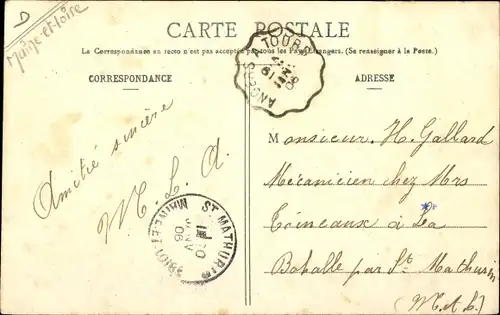 D
Maine-et-Loire
CARTE POSTALE
La Correspondance au recto n'est pas acceptée par tous les Pays Etrangers. (Se renseigner à la Poste.)
CORRESPONDANCE
ADRESSE
TOURS
ANGERS
Amitié sincère
M. L. A.
ST MATHURIN
MAINE-ET-LOIRE
06
Monsieur H. Gallard
Mécanicien chez Mrs
à La
Bohalle par St Mathurin
(M. et L.)